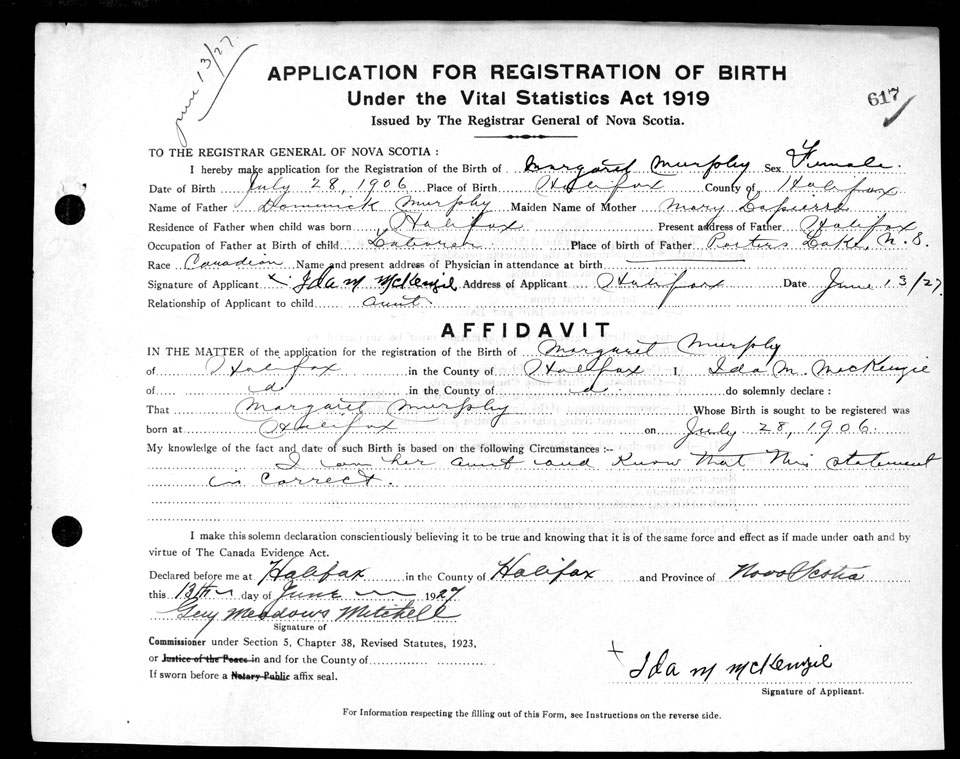 June 13/27.
APPLICATION FOR REGISTRATION OF BIRTH
Under the Vital Statistics Act 1919
617
Issued by The Registrar General of Nova Scotia.
TO THE REGISTRAR GENERAL OF NOVA SCOTIA :
I hereby make application for the Registration of the Birth of Margaret Murphy Sex Female.
Date of Birth July 28, 1906 Place of Birth Halifax County of Halifax
Name of Father Dominick Murphy Maiden Name of Mother Mary Lapierre
Residence of Father when child was born Halifax Present address of Father Halifax
Occupation of Father at Birth of child Laborer Place of birth of Father Porters Lake, N.S.
Race Canadian Name and present address of Physician in attendance at birth
Signature of Applicant x Ida M McKenzie Address of Applicant Halifax Date June 13/27.
Relationship of Applicant to child aunt
AFFIDAVIT
IN THE MATTER of the application for the registration of the Birth of Margaret Murphy
of Halifax in the County of Halifax I Ida M. MacKenzie
of do in the County of do do solemnly declare :
That Margaret Murphy Whose Birth is sought to be registered was
born at Halifax on July 28, 1906.
My knowledge of the fact and date of such Birth is based on the following Circumstances :-
I am her aunt and know that this statement
is correct.
I make this solemn declaration conscientiously believing it to be true and knowing that it is of the same force and effect as if made under oath and by
virtue of The Canada Evidence Act.
Declared before me at Halifax in the County of Halifax and Province of Nova Scotia
this 13th day of June 1927
Guy Meadows Mitchell
Signature of
Commissioner under Section 5, Chapter 38, Revised Statutes, 1923,
or Justice of the Peace in and for the County of
If sworn before a Notary Public affix seal.
x Ida M McKenzie
Signature of Applicant.
For Information respecting the filling out of this Form, see Instructions on the reverse side.